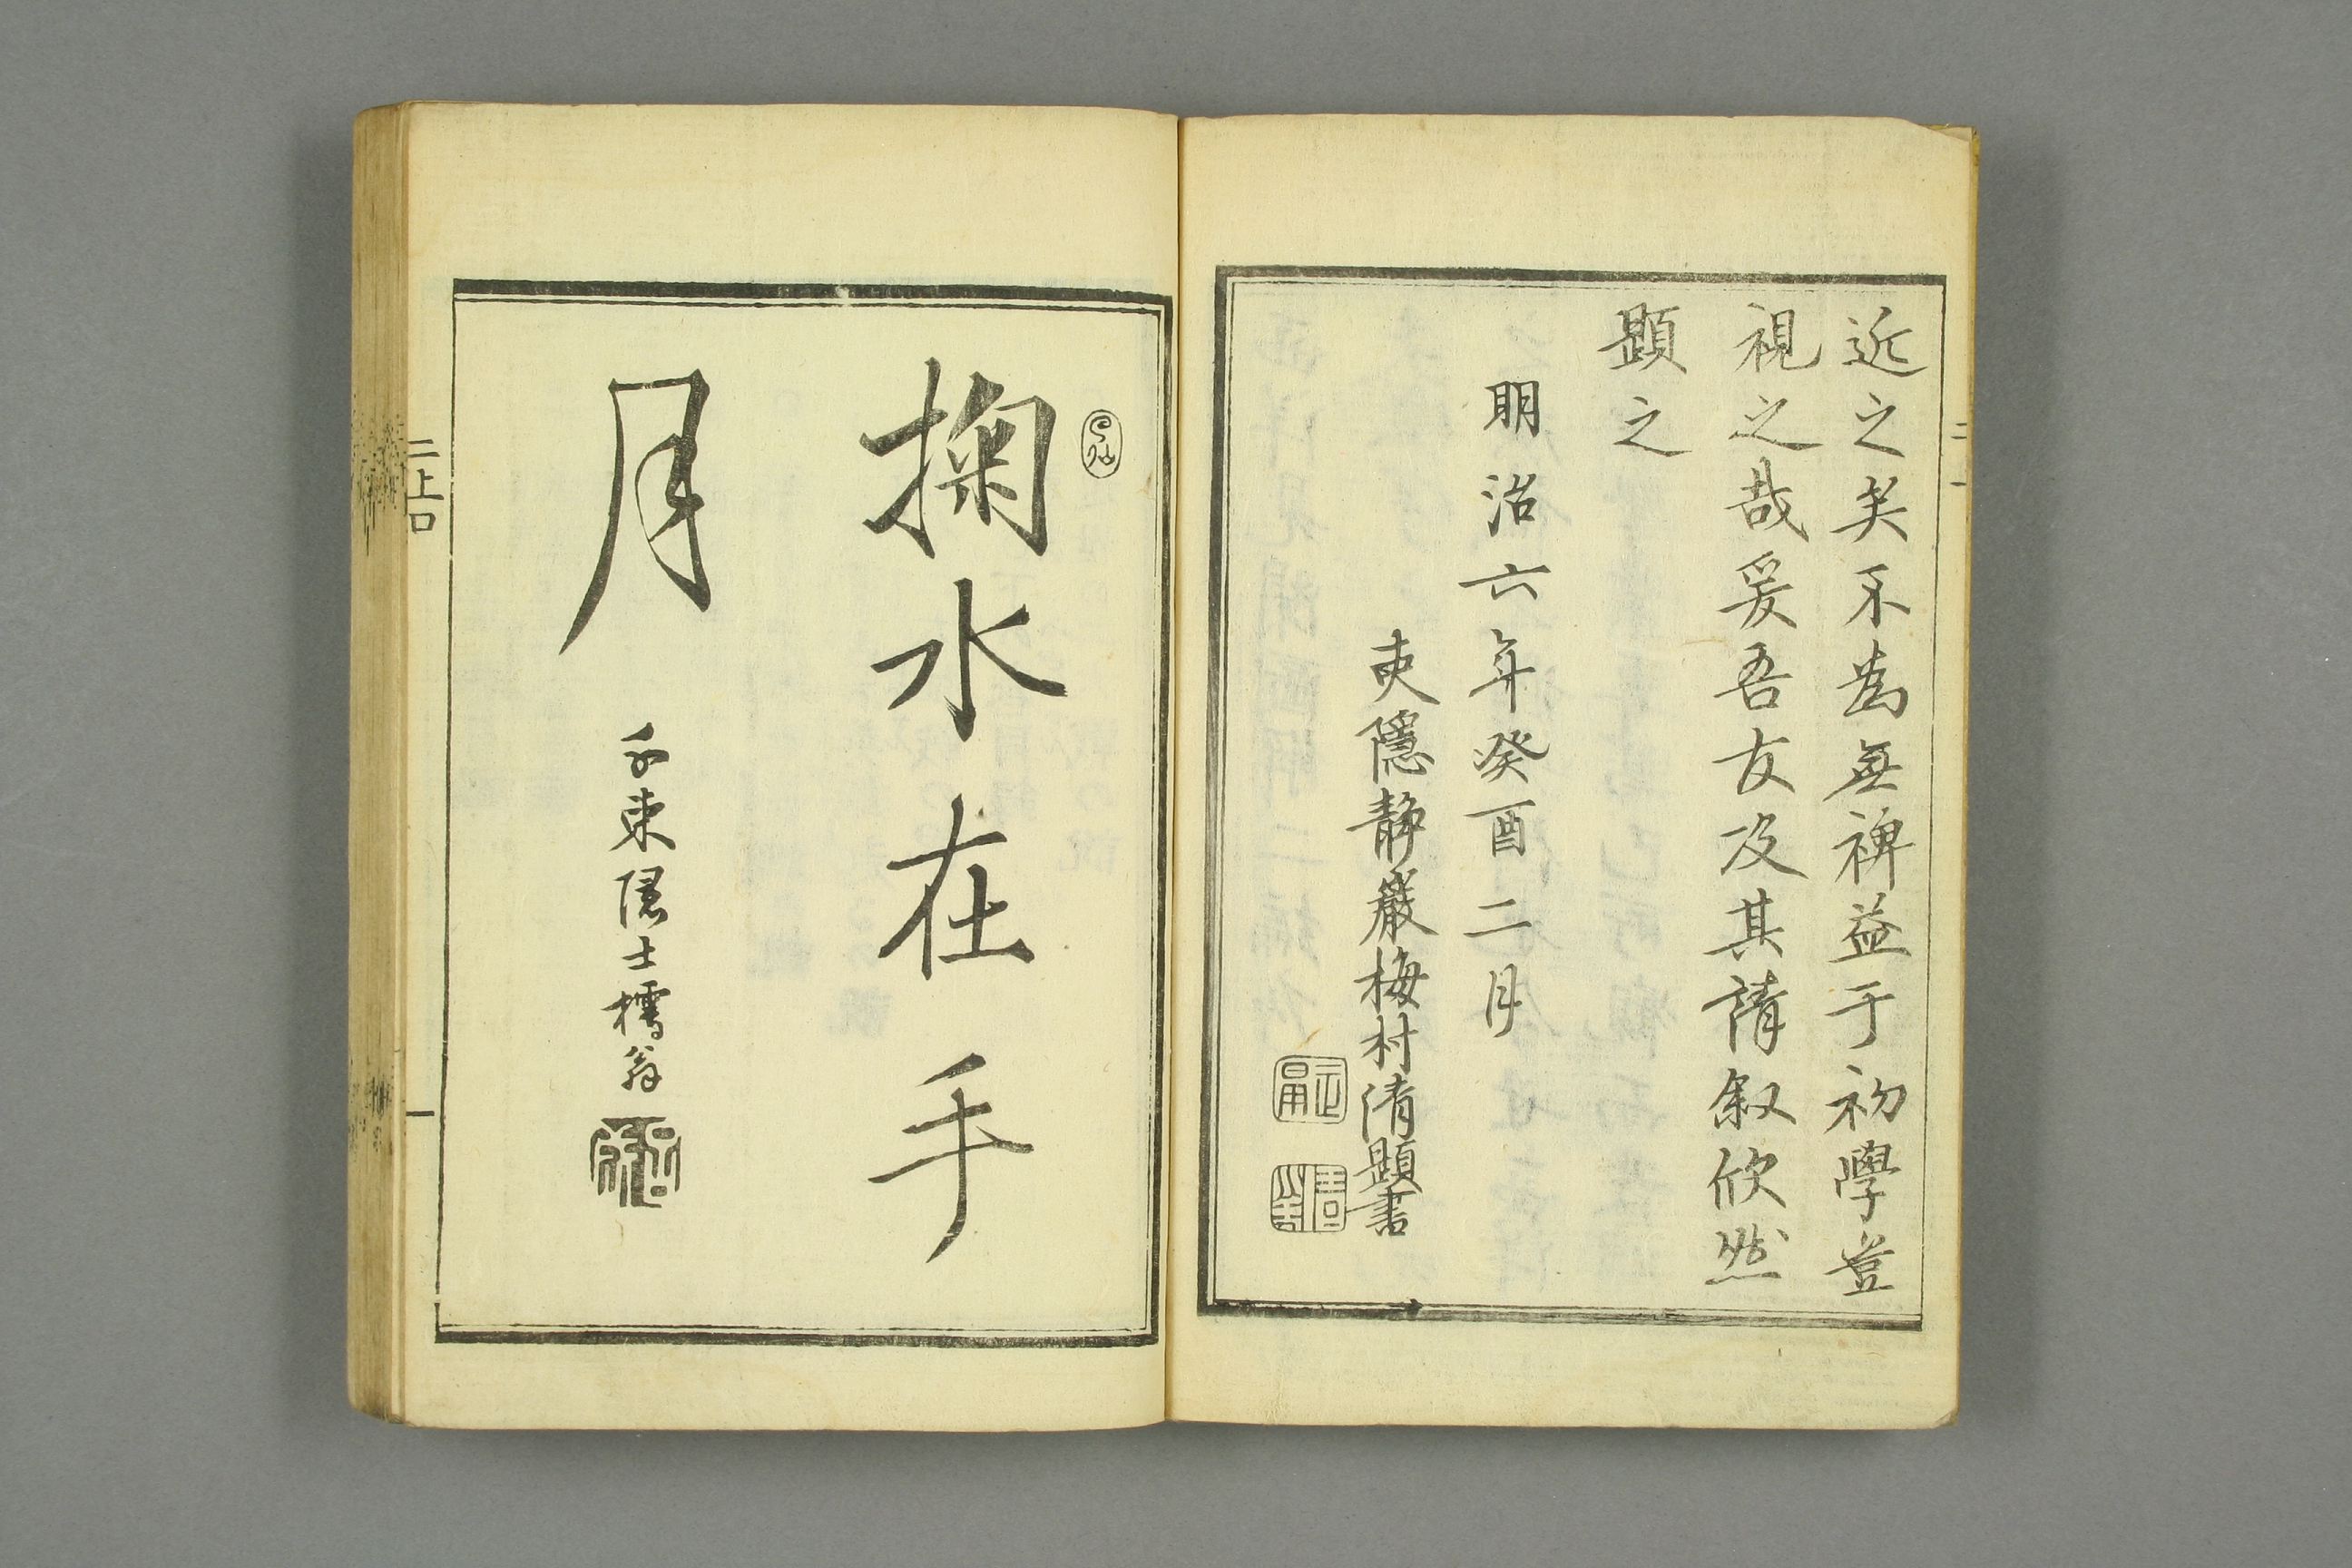 近之矣不為無裨益于初學豈
視之哉爰吾友及其請叙欣然
題之
明治六年癸酉二月
吏隱靜巖梅村清題書
掬水在手
月
東隠士樗翁
二上口
一